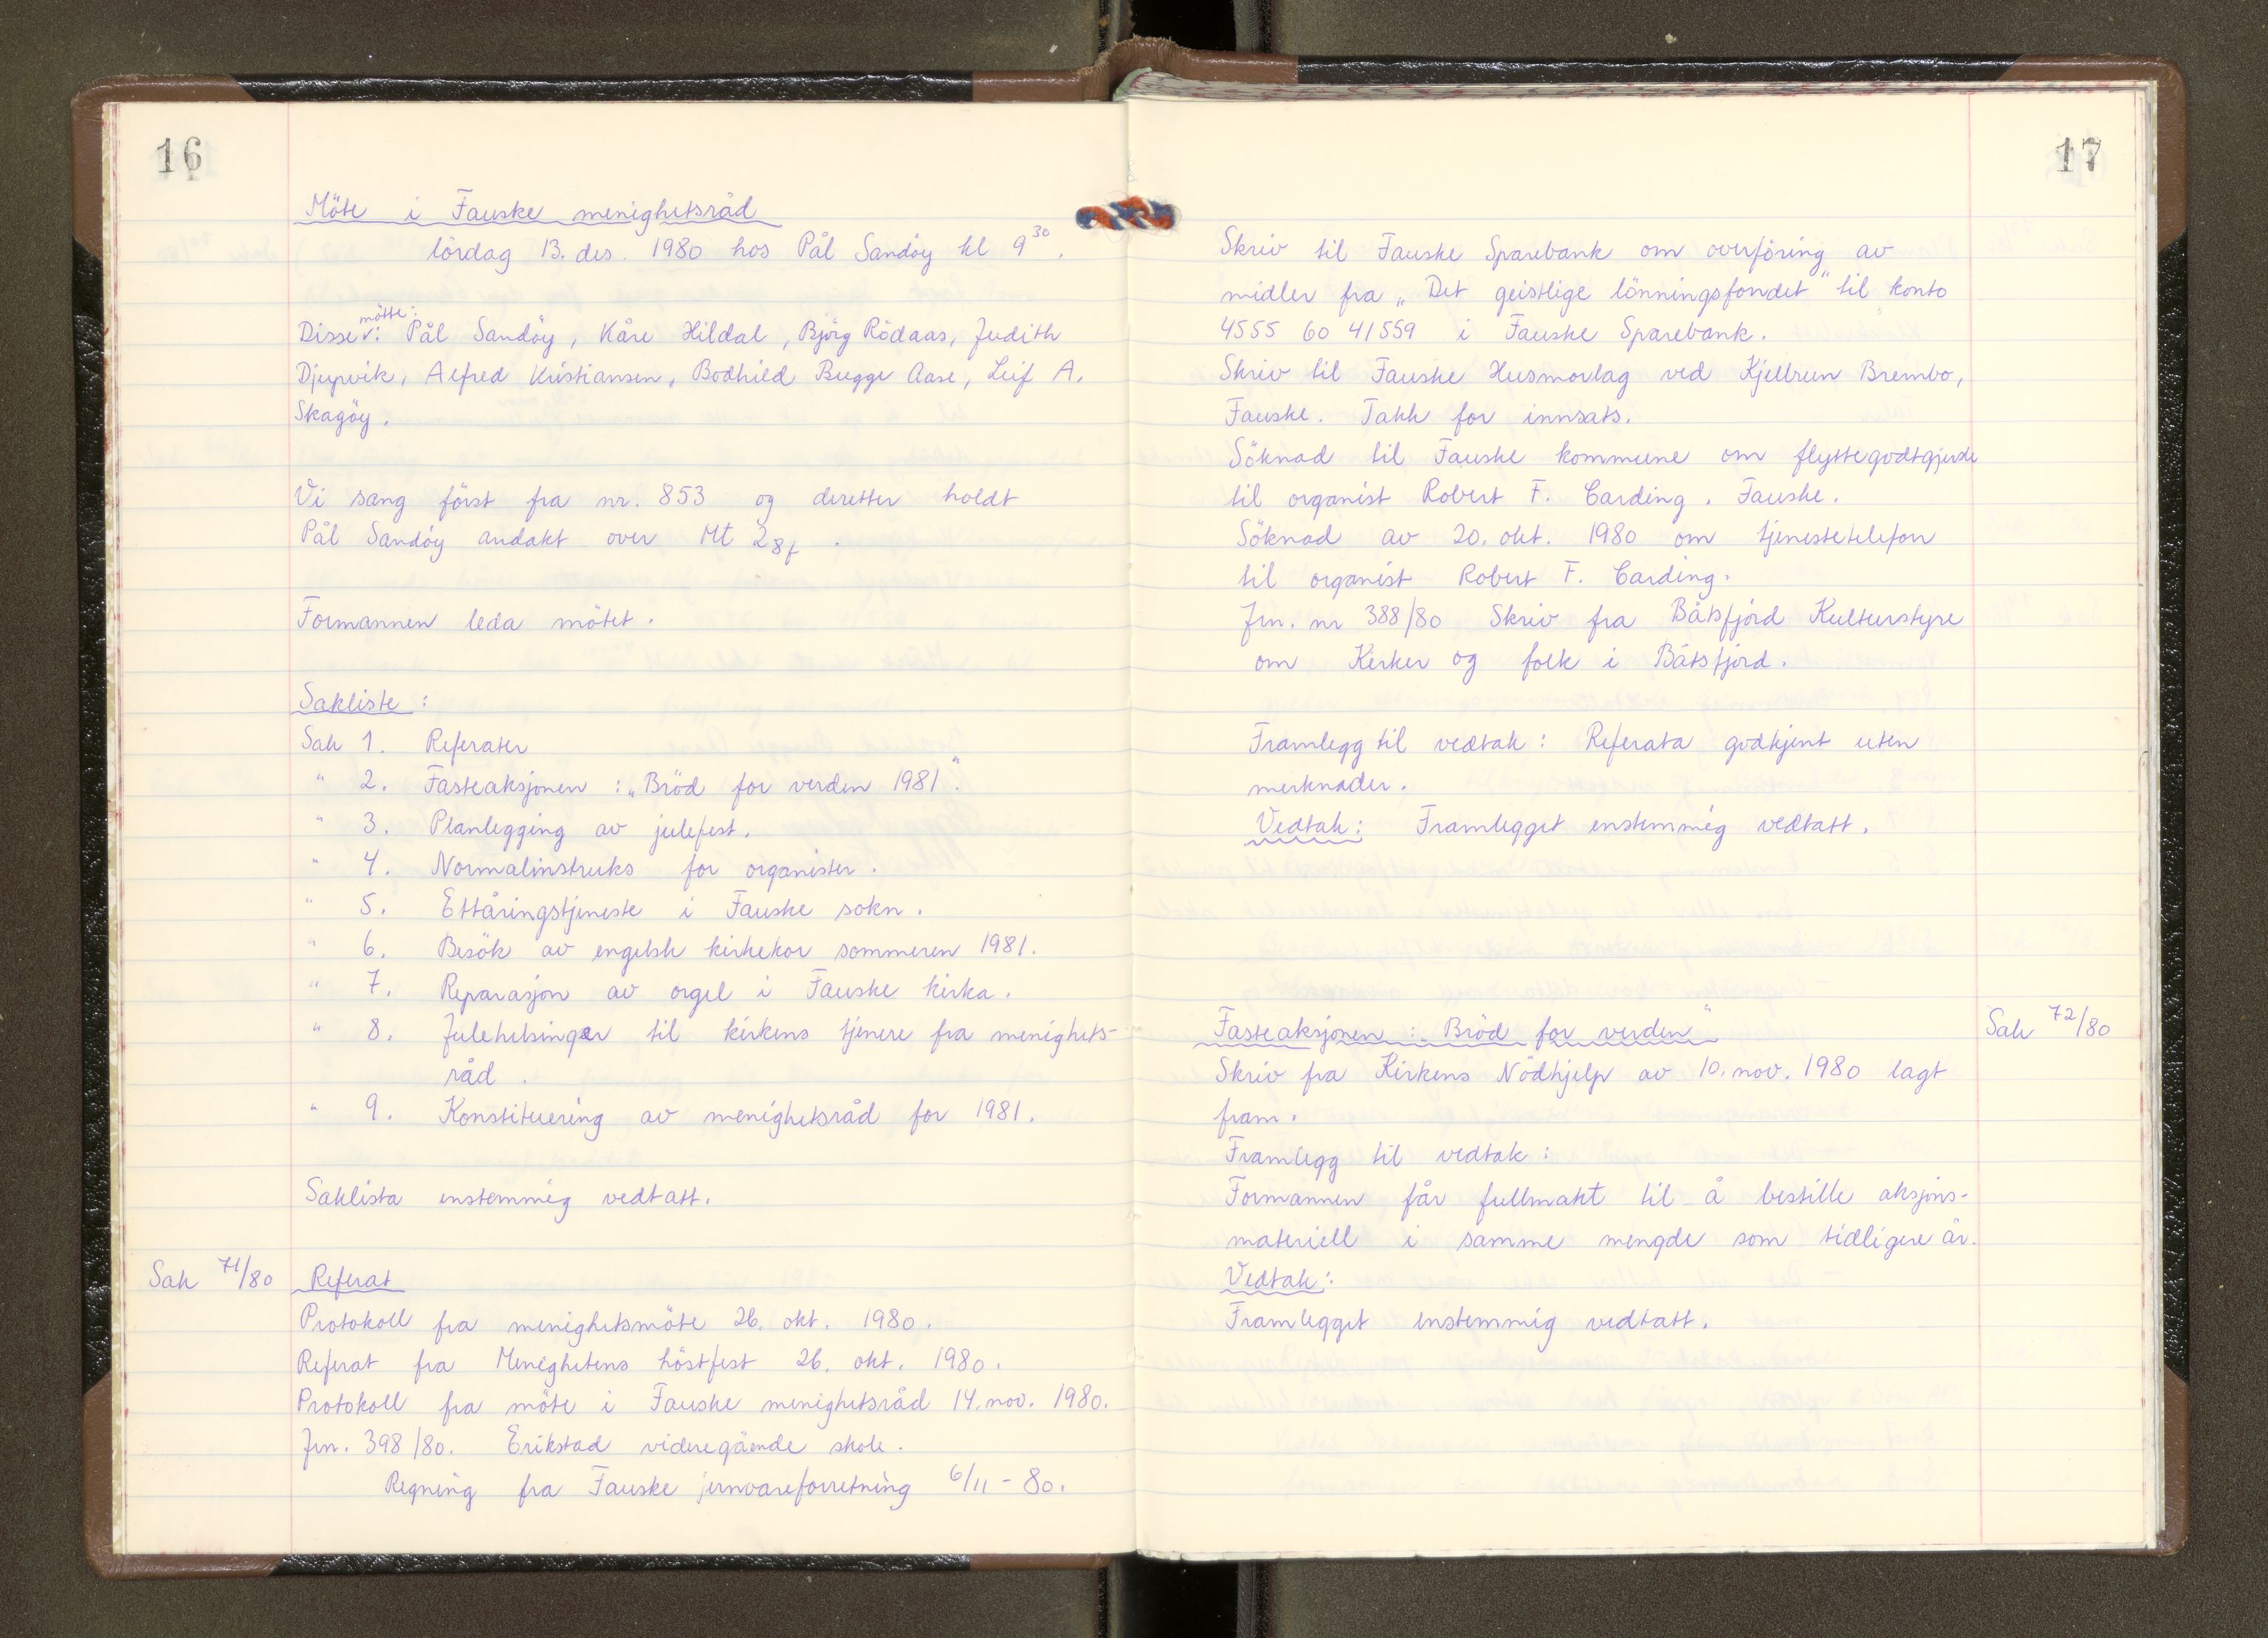 16
Möte i Fauske menighetsråd
lördag 13. des. 1980 hos Pål Sandöy kl 9 30.
mötte:
Disse v: Pål Sandöy, Kåre Hildal, Björg Rödaas, Judith
Djupvik, Alfred Kristiansen, Bodhild Bugge Aase, Leif A.
Skagöy.
Vi sang först fra nr. 853 og deretter holdt
Pål Sandöy andakt over Mt 28f.
Formannen leda mötet.
Sakliste:
Sak 1. Referater
" 2. Fasteaksjonen : „Bröd for verden 1981".
" 3. Planlegging av julefest.
" 4. Normalinstruks for organister.
" 5. Ettåringstjeneste i Fauske sokn.
" 6. Besök av engelsk kirkekor sommeren 1981.
" 7. Reparasjon av orgel i Fauske kirka.
" 8. Julehelsinger til kirkens tjenere fra menighets-
råd.
" 9. Konstituering av menighetsråd for 1981.
Saklista enstemmig vedtatt.
Sak 71/80 Referat
Protokoll fra menighetsmöte 26. okt. 1980.
Referat fra Menighetens höstfest 26. okt. 1980.
Protokoll fra möte i Fauske menighetsråd 14. nov. 1980.
Jrn. 398/80. Erikstad videregående skole.
Regning fra Fauske jernvareforretning 6/11 - 80.
17
Skriv til Fauske Sparebank om overföring av
midler fra „Det geistlige lönningsfondet" til konto
4555 60 41559 i Fauske Sparebank.
Skriv til Fauske Husmorlag ved Kjellrun Brembo,
Fauske. Takk for innsats.
Söknad til Fauske kommune om flyttegodtgjerde
til organist Robert F. Carding. Fauske.
Söknad av 20. okt. 1980 om tjenestetelefon
til organist Robert F. Carding.
Jrn. nr 388/80 Skriv fra Båtsfjord Kulturstyre
om Kirker og folk i Båtsfjord.
Framlegg til vedtak: Referata godkjent uten
merknader.
Vedtak: Framlegget enstemmig vedtatt.
Fasteaksjonen : „Bröd for verden" Sak 72/80
Skriv fra Kirkens Nödhjelp av 10. nov. 1980 lagt
fram.
Framlegg til vedtak:
Formannen får fullmakt til å bestille aksjons-
materiell i samme mengde som tidligere år.
Vedtak:
Framlegget enstemmig vedtatt.